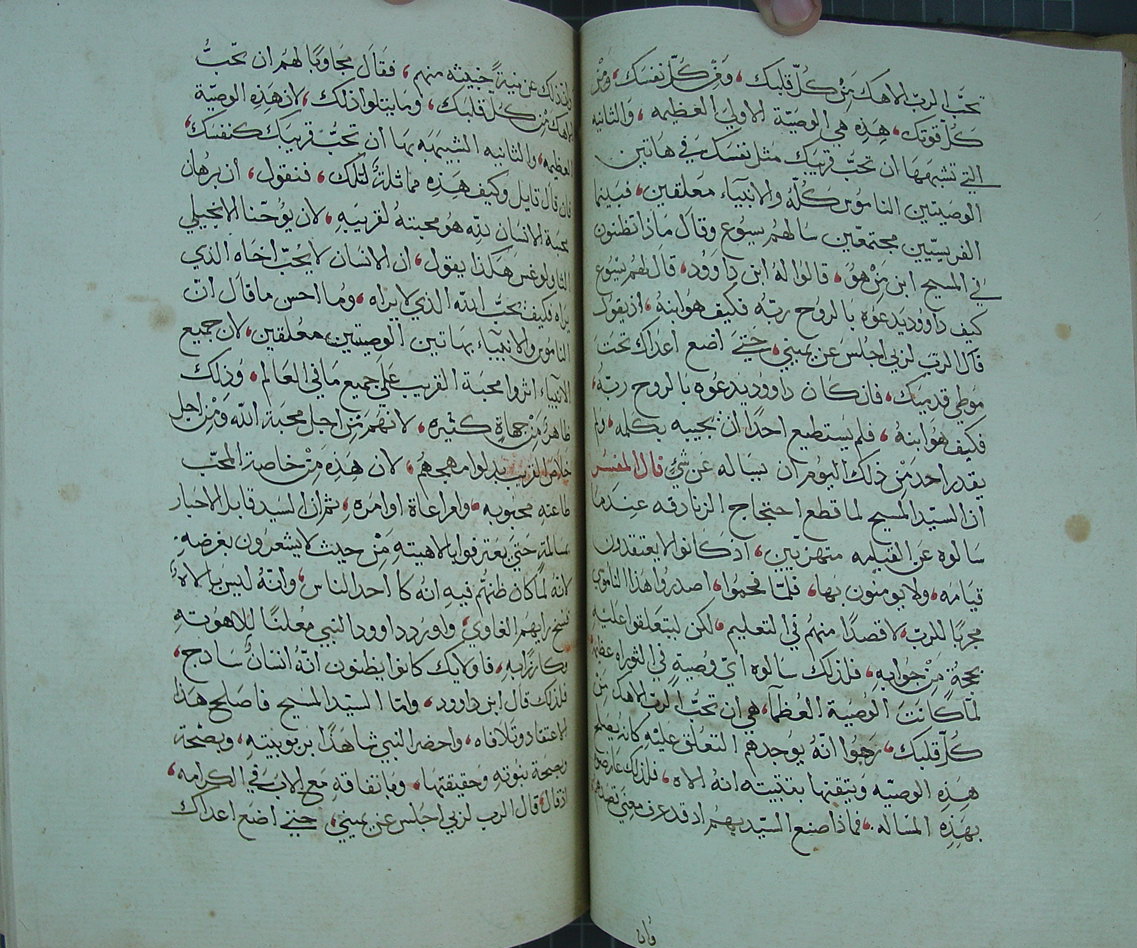 تحبّ الربّ الاهك مِنْ كُلّ قلبك، وَمِنْ كُلّ نفسك، وَمِنْ
كلّ قوتك، هَذِه هي الوصيّة الاولىٰ العظيمه، والثانيه
التي تشبهها ان تحبّ قريبك مثل نفسك، في هاتين
الوصيتين الناموس كُلّهُ والانبياء مَعلقين، فبينما
الفريسيّين مجتمعين سالهم يسوع وقال ماذا تظنون
في المسيح ابن مَنْ هوَ، قالوا له ابن داوود، قال لهم يسوع
كيف داوود يدعوه بالروح ربّه فكيف هو ابنهُ، اذ يقول
قال الرب لربي اجلس عن يميني، حتى اضع اعداك تحت
موطي قدميك، فان كان داوود يدعوه بالروح ربّهُ،
فكيف هو ابنهُ، فلم يستطيع احدًا ان يجيبه بكلمه، ولم
يقدر احد مِنْ ذلك اليوم ان يساله عن شي قال المفسر
ان السيّد المسيح لما قطع احتجاج الزنادقه عندما
سالوه عَن القيامه متهزيّين، اذ كانوا لا يعتقدون
قيامه، ولا يومنون بها، فلمّا فحموا، اصدروا هذا الناموسي
مجربًا للرب، لا قصدًا منهم في التعليم، لكن ليتعلقوا عليه
بحجةٍ مِنْ جوابهِ، فلذلك سالوه ايّ وصيةٍ في التوراه عظيمه
لمّا كانت الوصيّة العُظمآ، هي ان تحبّ الربّ الاهك مِن
كُلّ قلبك، رجوا انّهُ يوجدهم التعلق عليْهِ كانهُ يصلح
هذِهِ الوصيّه ويتيقنها بتثبيته انهُ الاه، فلذلك عارضوه
بهذِهِ المساله، فماذا صنع السيّد بهم اذ قد عرف معنى قصدهم
فان
وان ذلك عن نيةً خبيثه منهم، فقال مجاوبًا لهم ان تحبّ
الاهك مِن كل قلبك، وما يتلوا ذلك، لان هذِهِ الوصيّة
العظيمه، والثانيه الشبيهه بها ان تحبّ قريبك كنفسك،
فان قال قايل وكيف هَذِه مماثلةً لتلك، فنقول، ان برهان
محبّة الانسان للّه هو محبتهُ لقريبَهِ، لان يوحّنا الانجيلي
الثاولوغس هكذا يقول، ان الانسان لا يحُبّ اخاه الذي
يراه فكيف يحبّ اللّه الذي لا يراه، وما احسن ما قال انّ
الناموس والانبيآء بهاتين الوصيتين معلقين، لان جميع
الانبياء اثروا محبة القريب على جميع ما في العالم، وذلك
ظاهرٌ مِنْ جهاةٍ كثيره، لانهم مِن اجل محبة اللّه ومِنْ اجل
خلاص القريب بدلوا مهجهم، لان هَذِه مِنْ خاصة المحبّ
طاعته محبوبه، وامراعاة اوامره، ثم ان السيد قابل الاحبار
بمسالة حتى يعترفوا بالاهيتهِ مِنْ حيث لا يشعرون بغرضه،
لانهُ لمّا كان ظنهم فيهِ انهُ كا احد الناس، وانهُ ليس بالاه
نسخ رايهم الغاوي، واورد داوود النبي مُعلنًا للاهوتهِ
بكارزًا بهِ، فاولايك كانوا يظنون انّهُ انسانٌ سادج،
فلذلك قال ابن داوود، وامّا السيّد المسيح فاصلح هذا
الاعتقاد وتلافاه، واحضر النبي شاهدًا بربوبيتهِ، وبصحّة
وبصحة بنوتهِ وحقيقتها، وباتفاقهِ مع الاب في الكرامه،
اذ قال، قال الرب لربي اجلس عن يميني، حتى اضع اعداك